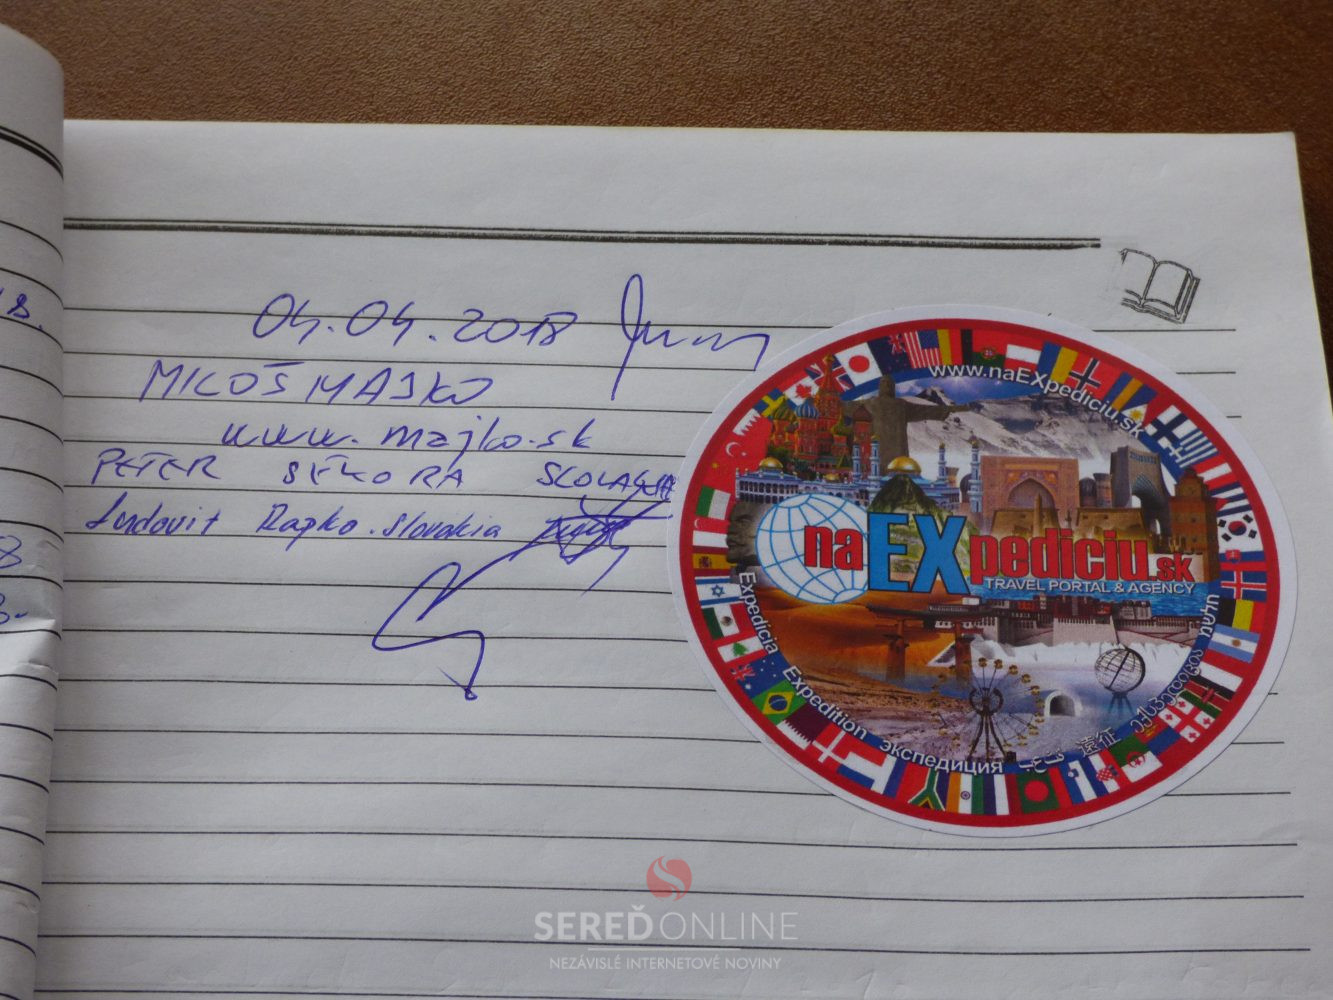 18.
8
3.
04.04.2018
MILOŠ MAJKO
www.majko.sk
PETER SÝKORA SLOVAKIA
Ludovit Rapko. Slovakia
www.naEXpediciu.sk
naEXpediciu.sk
TRAVEL PORTAL & AGENCY
Expedícia Expedition экспедиция 遠征 ექსპედიცია משלחת
SEREĎONLINE
NEZÁVISLÉ INTERNETOVÉ NOVINY